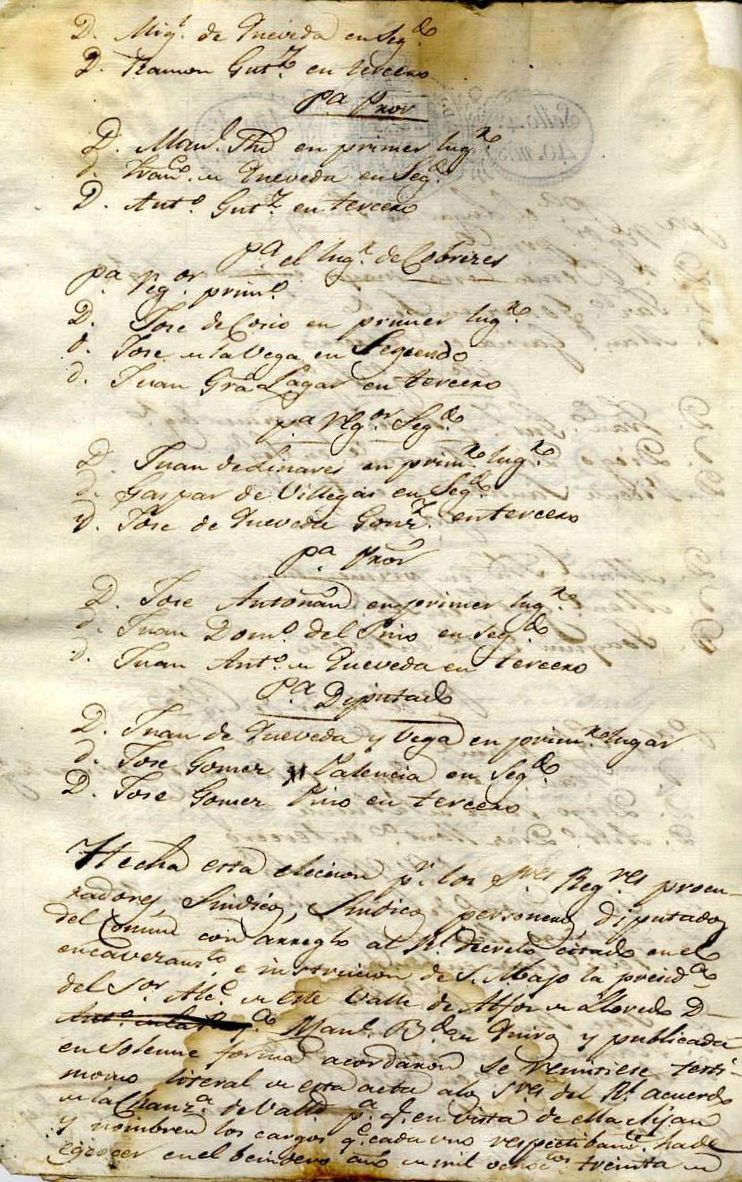 D. Migl. de Queveda en segdo
D. Ramon Gutz. en tercero
pa Pror
D. Manl. Thd en primer lugr
d. Franco. de Queveda en segdo
D. Anto. Gutz. en tercero
pa el lugr. de Cobreces
pa Regor primo.
D. Jose de Cosio en primer lugr
d. Jose de la Vega en Segundo
d. Juan Gra Lagar en tercero
pa Regor Segdo
D. Juan de Linares en primr lugr
d. Gaspar de Villegas en Segdo
d. Jose de Queveda Gonz. en tercero
pa Pror
D. Jose Antoñan en primer lugr
d. Juan Domo. del Pino en segdo
d. Juan Anto. de Queveda en tercero
Pa Diputado
D. Juan de Queveda y Vega en primro lugar
d. Jose Gomez Palencia en Segdo
D. Jose Gomez Pino en tercero
Hecha esta eleccion pr. los Sres Regres procu-
radores Sindico, Sindico personero, diputados
del comun con arreglo al Rl decreto citado en el
encavezamto e instrucion de S. M. bajo la presida
del Sor. Alce. de este Valle de Alfoz de Lloredo D-
Manl. en y publicada
en solemne forma acordaron se remitiese testi-
monio literal de esta acta a los Sres del Rl acuerdo
de la Chanza. de Valld pa. q. en vista de ella elijan
y nombren los cargos qe. cada uno respectibamte. ha de
egercer en el benidero año de mil ochoctos treinta de